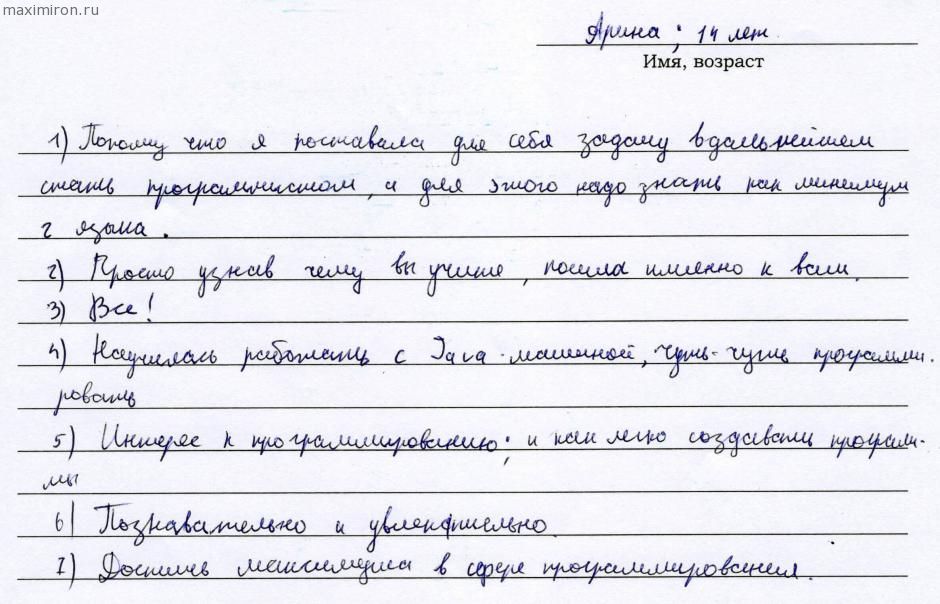 maximiron.ru
Арина; 14 лет
Имя, возраст
1) Потому что я поставила для себя задачу вдальнейшем
стать программистом, а для этого надо знать как минимум
2 языка.
2) Просто узнав чему вы учите, пошла именно к вам.
3) Все!
4) Научилась работать с Java-машиной, чуть-чуть программи-
ровать
5) Интерес к программированию; и как легко создавать програм-
мы
6) Познавательно и увлекательно.
7) Достичь максимума в сфере программирования.